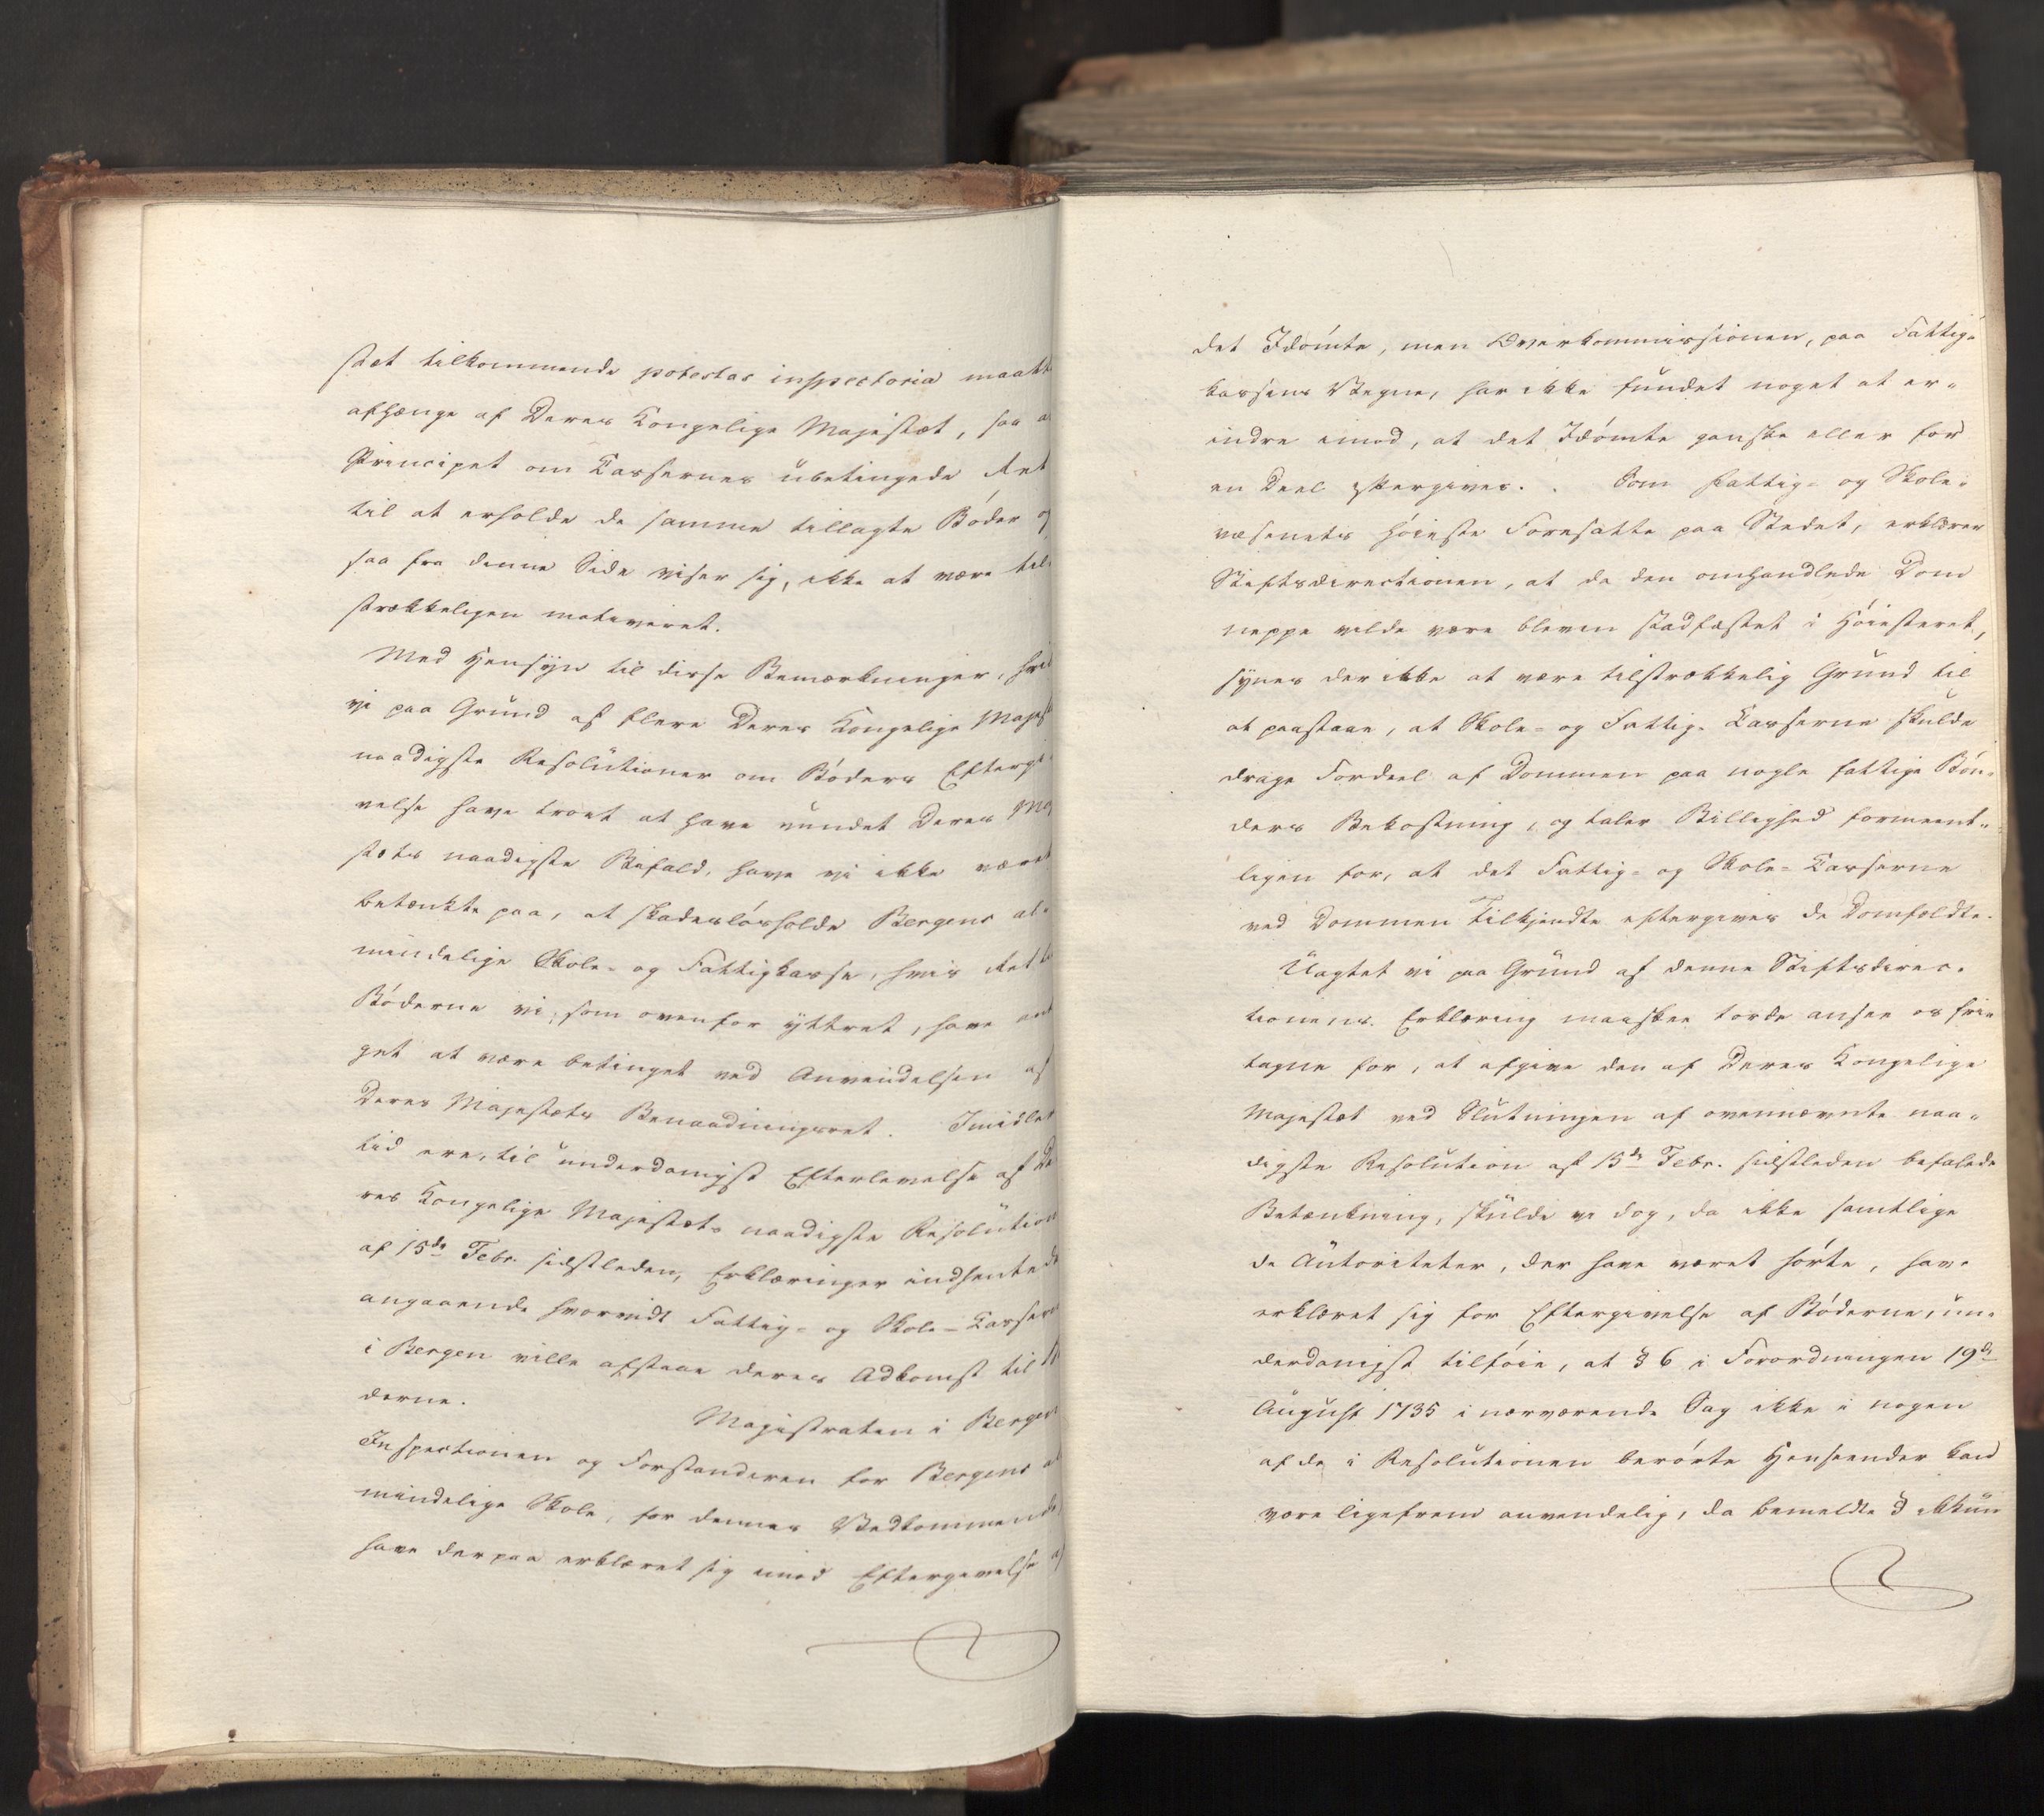 stæt tilkommende potestas inspectoria maatte
afhænge af Deres Kongelige Majestæt, saa a
Principet om Cassernes ubetingede Ret
til at erholde de samme tillagte Bøder og
saa fra denne Side viser sig, ikke at være til-
strækkeligen motiveret.
Med Hensyn til disse Bemærkninger, hvil
vi paa Grund af flere Deres Kongelige Majest
naadigste Resolutioner om Bøders Eftergi-
velse have troet at have vundet Deres Maj
stæts naadigste Bifald, have vi ikke været
betænkte paa, at skadesløsholde Bergens al-
mindelige Skole- og Fattigkasse, hvis Ret til
Bøderne vi, som ovenfor yttret, have anta
get at være betinget ved Anvendelsen af
Deres Majestæts Benaadningsret. Imidler
tid ere, til underdanigst Efterlevelse af De
res Kongelige Majestæts naadigste Resolution
af 15de Febr. sidstleden, Erklæringer indhentede
angaaende hvorvidt Fattig- og Skole-Casserne
i Bergen ville afstaae deres Adkomst til Bø
derne.
Magistraten i Bergen
Inspectionen og Forstanderen for Bergens al
mindelige Skole, for dennes Vedkommende
have derpaa erklæret sig imod Eftergivelse af
det Idømte, men Overkommissionen, paa Fattig-
kassens Vegne, har ikke fundet noget at er-
indre imod, at det Idømte ganske eller for
en Deel eftergives. Som Fattig- og Skole-
væsenets høieste Foresatte paa Stedet, erklærer
Stiftsdirectionen, at da den omhandlede Dom
neppe vilde være bleven stadfæstet i Høiesteret,
synes der ikke at være tilstrækkelig Grund til
at paastaae, at Skole- og Fattig-Casserne skulde
drage Fordeel af Dommen paa nogle fattige Bøn-
ders Bekostning, og taler Billighed formeent-
ligen for, at det Fattig- og Skole-Casserne
ved Dommen Tilkjendte eftergives de Domfældte.
Uagtet vi paa Grund af denne Stiftsdirec-
tionens Erklæring maaskee torde ansee os frie
tagne for, at afgive den af Deres Kongelige
Majestæt ved Slutningen af ovennævnte naa-
digste Resolution af 15de Febr. sidstleden befalede
Betænkning, skulde vi dog, da ikke samtlige
de Autoriteter, der have været hørte, have
erklæret sig for Eftergivelse af Bøderne, un-
derdanigst tilføie, at § 6 i Forordningen 19de
August 1735 i nærværende Sag ikke i nogen
af de i Resolutionen berørte Henseender kan
være ligefrem anvendelig, da bemeldte § ikkun